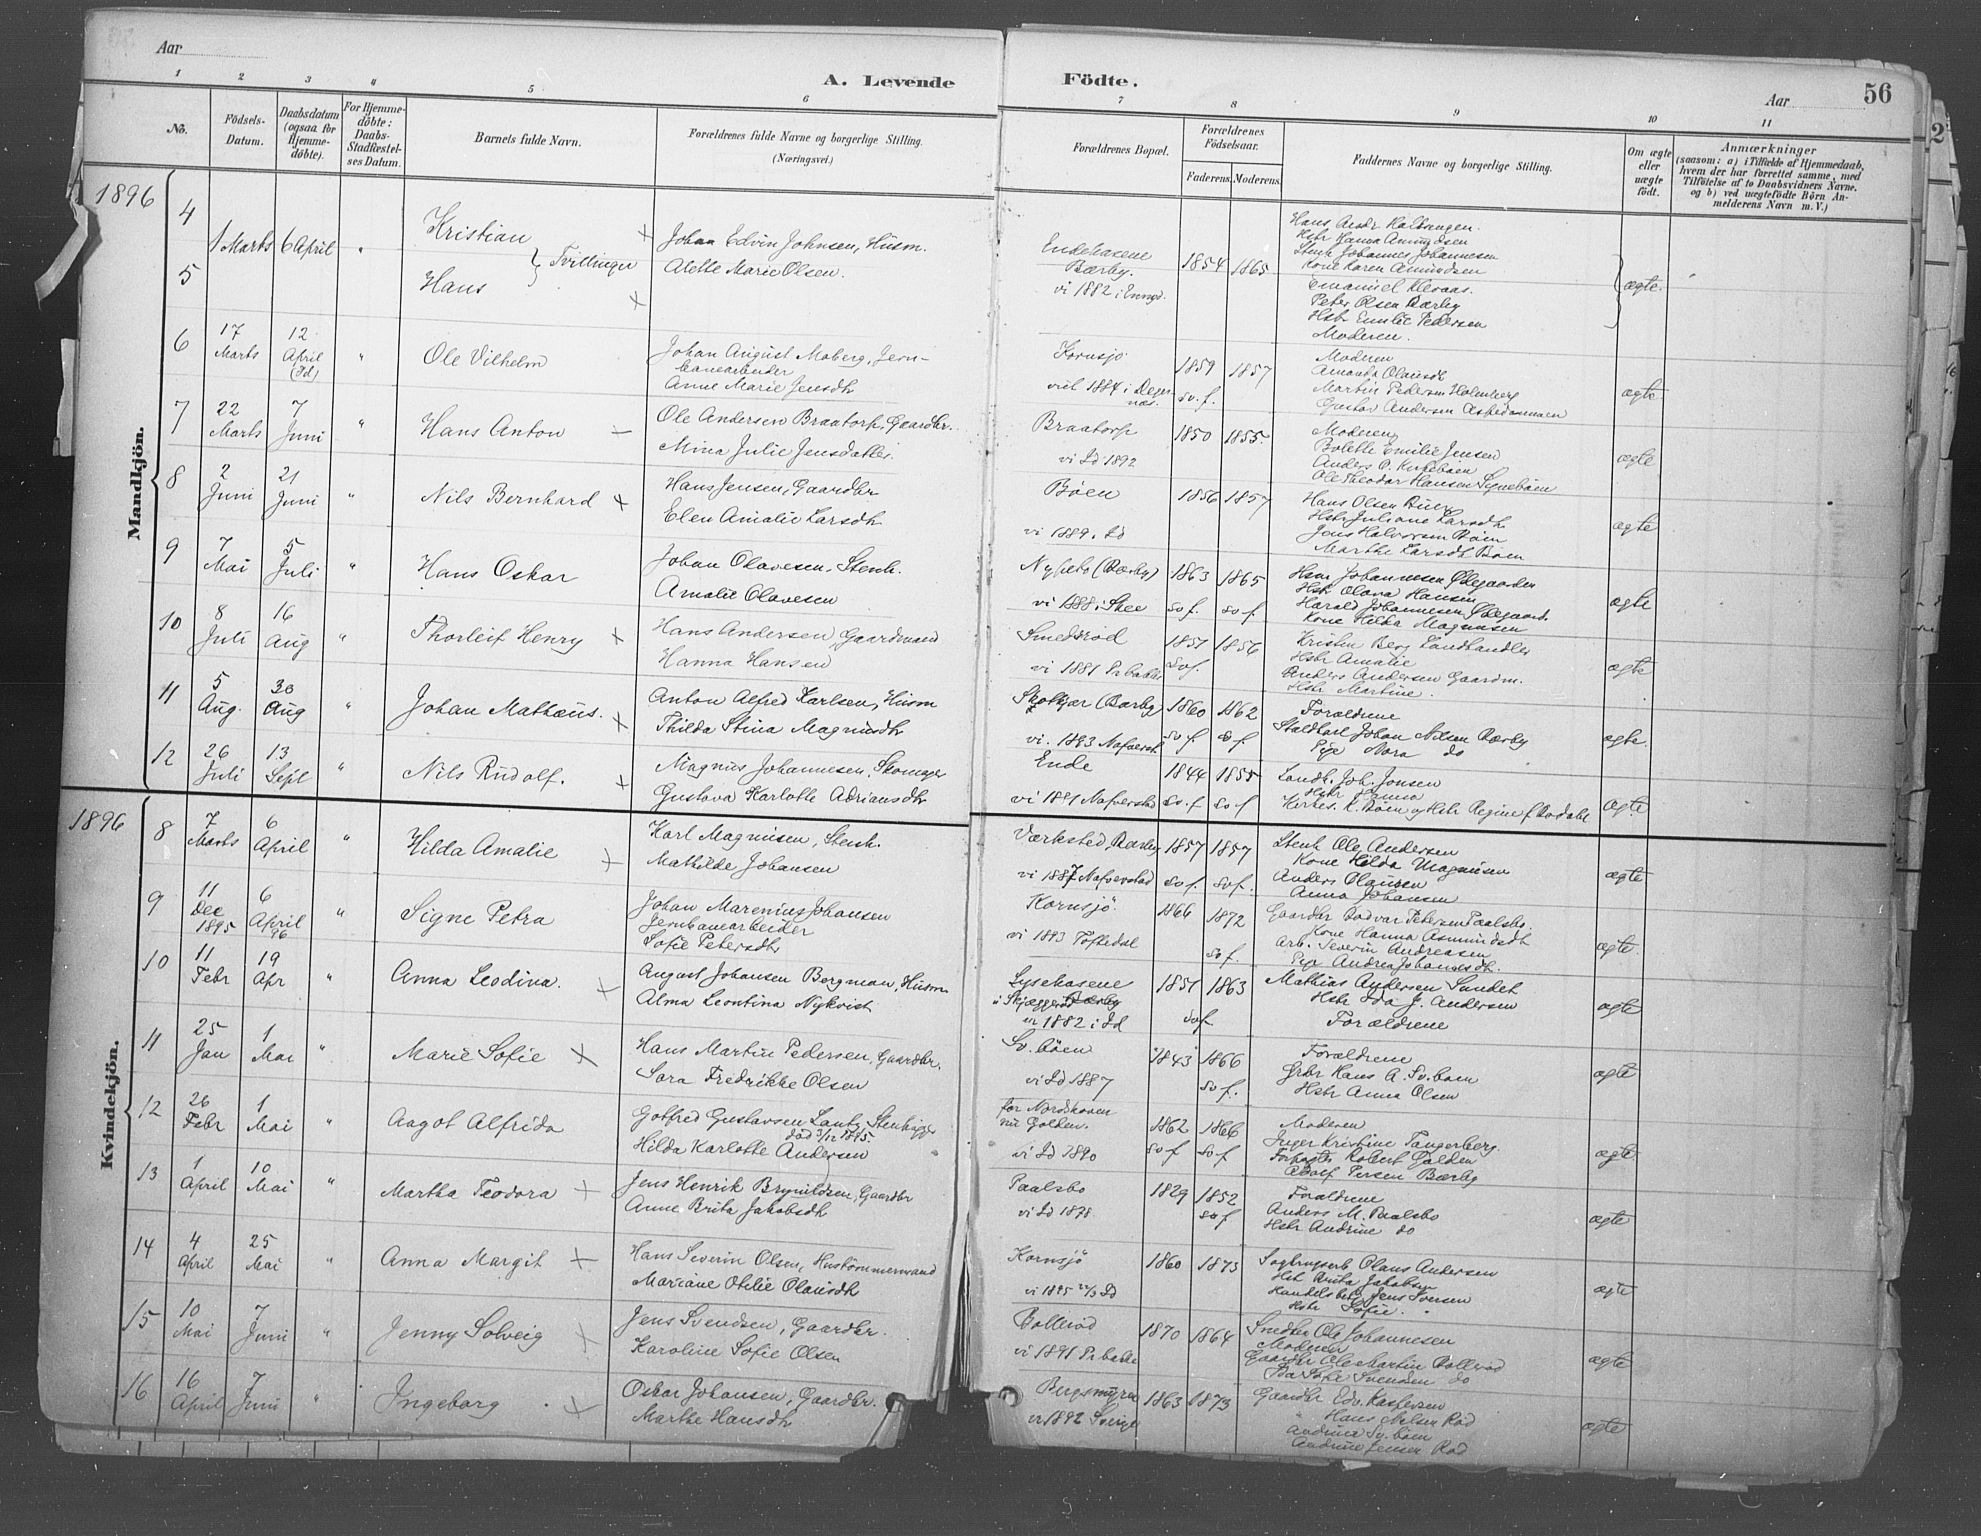 Aar
A. Levende
Födte.
Aar
56
1 2 3 4 5 6 7 8 9 10 11
No.
Födsels-Datum.
Daabsdatum (ogsaa for Hjemme-döbte).
For Hjemme-döbte: Daabs-Stadfæstel-ses Datum.
Barnets fulde Navn.
Forældrenes fulde Navne og borgerlige Stilling. (Næringsvei.)
Forældrenes Bopæl.
Forældrenes Födselsaar.
Faderens. Moderens.
Faddernes Navne og borgerlige Stilling.
Om ægte eller uægte födt.
Anmærkninger
(saasom: a) i Tilfælde af Hjemmedaab, hvem der har forrettet samme, med Tilföielse af to Daabsvidners Navne. og b) ved uægtefödte Börn An-melderens Navn m. V.)
Mandkjön.
1896
4
5
1 Marts 6 April "
Kristian
Hans
} Tvillinger
Johan Edvin Johnsen, Husm.
Alette Marie Olsen.
Endehasene
Bærby.
vi 1882 i
1854 1865
Hans Andr
Hstr Hanna Amundsen
Stenh Johannes Johannesen
Kone Karen Amundsen
Emanuel Klevaas.
Peter Olsen Bærby
Hstr Emilie Pedersen
Moderen.
ægte.
6
17 Marts 12 April (Id) "
Ole Vilhelm
Johan August Moberg, Jern-
banearbeider
Anne Marie Jensdtr
Kornsjö
viet 1884 i
1859 1857
sv. f.
Moderen
Amanda Olausdtr
Martin Pedersen Holmberg
Gustav Andersen
ægte
7
22 Marts 7 Juni "
Hans Anton
Ole Andersen Braatorp, Gaardbr.
Mina Julie Jensdatter.
Braatorp
vi Id 1892
1850 1855.
Moderen
Bolette Emilie Jensen
Anders O. Kirkebøen
Ole Theodor Hansen Signebøen
ægte
8
2 Juni 21 Juni "
Nils Bernhard
Hans Jensen, Gaardbr
Elen Amalie Larsdtr
Bøen
vi 1889. Id
1856 1857
Hans Olsen Buer
Hstr Juliane Larsdtr
Jens Halvorsen Bøen
Marthe Larsdtr Bøen
ægte
9
7 Mai 5 Juli "
Hans Oskar
Johan Olavesen, Stenh.
Amalie Olavesen
Nyhebo (Bærby)
vi 1888 i Skee
1863 1865
sv f. sv f.
Hans Johannesen Ødegaarden
Hstr Olava Hansen
Harald Johannesen Ødegaard.
Kone Hilda Magnusen
ægte
10
8 Juli 16 Aug "
Thorleif Henry
Hans Andersen, Gaardmand
Hanna Hansen
Smedsrød
vi 1881 Pr bakke
1851 1856
sv f.
Kristen Berg Landhandler
Hstr Amalie
Anders Andersen Gaardm.
Hstr Martine.
ægte
11
5 Aug. 30 Aug "
Johan Mathæus.
Anton Alfred Karlsen, Husm
Thilda Stina Magnusdtr
Skotkjær (Bærby)
vi. 1893 Nafverst.
1860 1862
sv f. sv f.
Forældrene
Staldkarl Johan Nilsen Bærby
Pige Nora do
ægte.
12
26 Juli 13 Sept "
Nils Rudolf.
Magnus Johannesen, Skomager
Gustava Karlotte Adriansdtr
Ende
vi 1881 Nafverstad
1844 1855
sv. f sv f
Landh. Joh. Jonsen
Hstr Hanna
Kirkes. K. Bøen og Hstr Regine
ægte
Kvindekjön.
1896
8
7 Marts 6 April "
Hilda Amalie
Karl Magnusen, Stenh.
Mathilde Johansen
Værksted, Bærby
vi 1887 Nafverstad
1857 1857
sv f. sv f.
Stenh Ole Andersen
Kone Hilda Magnusen
Anders Olausen
Anna Johansen
ægte
9
11 Dec 1895 6 April 96 "
Signe Petra
Johan Marenius Johansen
Jernbanearbeider
Sofie Petersdtr
Kornsjö
vi 1893 Töftedal
1866 1872
sv f.
Gaardbr Oodvar Petersen Paalsbo.
Kone Hanna Asmundsdtr
Arb. Severin Andreasen
Pige Andrea Johansdtr.
ægte
10
11 Febr 19 Apr "
Anna Leodina.
August Johansen Bergman, Husm
Alma Leontina Nykvist
Lysehasene
u Skjæggerød Bærby
vi 1882 i Id
1851 1863
sv f.
Mathias Andersen Sundet
Hstr Ida J. Andersen
Forældrene
ægte
11
25 Jan 1 Mai "
Marie Sofie
Hans Martin Pedersen, Gaardbr.
Sara Fredrikke Olsen
Sv. bøen
vi Id 1887
1843 1866
sv f.
Forældrene
Grbr Hans A. Sv. bøen
Hstr Anna Olsen
ægte
12
26 Febr 1 Mai "
Aagot Alfrida
Gotfred Gustavsen Lantz, Stenhugger
død 3/12 1895.
Hilda Karlotte Andersen
før Nordskoven
nu Golden.
vi Id 1890
1862 1866
sv f sv f
Moderen
Inger Kristine Tangerberg.
Forpagter Robert Golden
Adolf Persen Bærby
ægte
13
1 April 10 Mai "
Martha Teodora
Jens Henrik Brynildsen, Gaardbr
Anne Brita Jakobsdtr
Paalsbo
vi Id 1878
1829 1852
sv f
Forældrene
Anders M. Paalsbo
Hstr Andrine do
ægte
14
4 April 25 Mai "
Anna Margit
Hans Severin Olsen, Hustömmermand
Mariane Otelie Olausdtr
Kornsjö
vi 1895 22/3 Id
1860 1873
Sagbrugsarb Olaus Andersen
Hstr Anita Jakobsen
Handelsbetj Jens Iversen
Hstr Sofie.
ægte
15
10 Mai 7 Juni "
Jenny Solveig
Jens Svendsen, Gaardbr.
Karoline Sofie Olsen
Bollerød
vi 1891 Pr bakke
1870 1864
Snedker Ole Johannesen
Moderen
Gaardbr Ole Martin Bollerød
Ida Sofie Svendsen do
ægte
16
16 April 7 Juni "
Ingeborg
Oskar Johansen, Gaardbr.
Marthe Hansdtr
Bergsmyren
vi 1892 Sverige
1863 1873
Gaardbr Edv. Kaspersen
" Hans Nilsen Rød
Andrine Sv. bøen
Andrine Jensen Rød
ægte